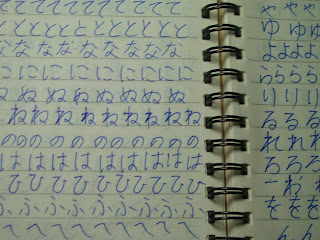 ててててててててててて
とととととととととと
ななななななななな
にににににににに
ぬぬぬぬぬぬぬぬ
ねねねねねねねねね
ののののののののののの
はははははははははは
ひひひひひひひひひ
ふふふふふふふ
へへへへへへへへへ
ややや
ゆゆゆ
よよよよ
らららら
りりり
るるる
れれれ
ろろろ
ををを
んん